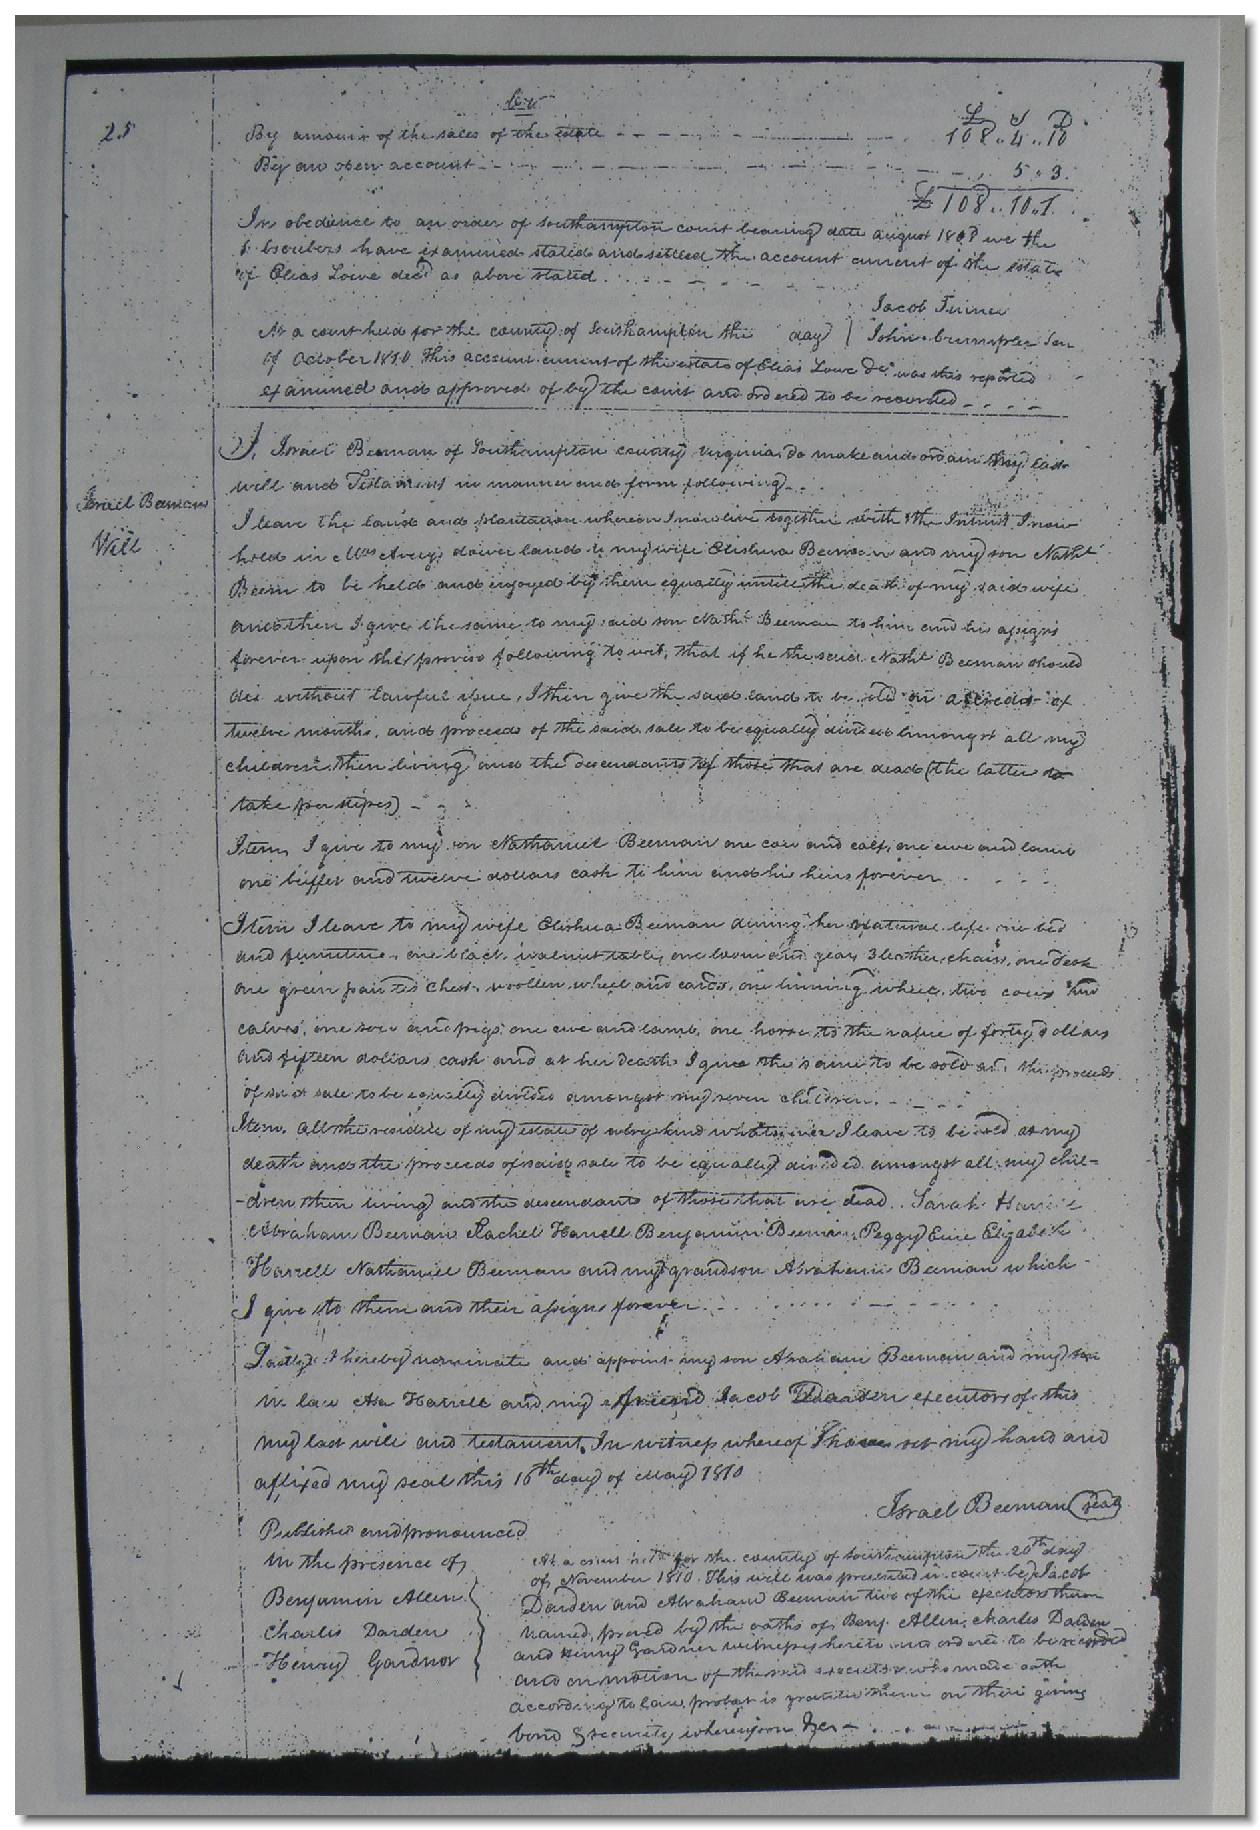 25
Cr
£ S D
By amount of the sales of the estate 108..4..10
By an open account 5..3
£ 108..10..1
In obedience to an order of Southampton court bearing date august we the
have examined stated and settled the account current of the estate
of Elias Lowe decd as above stated
Jacob Turner
At a court held for the county of Southampton the day John Crumpler Sen
of October 1810 This account current of the estate of Elias Lowe Decd was this reported
examined and approved of by the court and ordered to be recorded
Israel Beeman
Will
I, Israel Beeman of Southampton county Virginia do make and ordain this my last
will and Testament in manner and form following
I leave the land and plantation whereon I now live together with the Intrust I now
hold in Mrs Averys dower land to my wife Elishua Beeman and my son Nathl
Beem to be held and enjoyed by them equally untill the death of my said wife
and then I give the same to my said son Nathl Beeman to him and his assigns
forever upon the proviso following to wit, that if he the said Nathl Beeman should
die without lawful issue, I then give the said land to be sold on a credit of
twelve months, and proceeds of the said sale to be equally divided amongst all my
children then living and the descendants of those that are dead (the latter to
take per stipes)
Item, I give to my son Nathaniel Beeman one cow and calf, one ewe and lamb
one buffet and twelve dollars cash to him and his heirs forever
Item I leave to my wife Elishua Beeman during her natural life one bed
and furniture, one black walnut table, one loom and gear, 3 leather chairs, one desk
one green painted chest, woollen wheel and cards, one linning wheel, two cows and
calves, one sow and pigs, one ewe and lamb, one horse to the value of forty dollars
and fifteen dollars cash and at her death I give the same to be sold and the proceeds
of said sale to be equally divided amongst my seven children.
Item. All the residue of my estate of whatsoever I leave to be sold at my
death and the proceeds of said sale to be equally divided amongst all my chil-
-dren then living and the descendants of those that are dead. Sarah
Abraham Beeman Rachel Harrell Benjamin Beeman, Peggy Elizabeth
Harrell Nathaniel Beeman and my grandson Abraham Beeman which
I give to them and their assigns forever
Lastly I hereby nominate and appoint my son Abraham Beeman and my son
in law Asa Harrell and my friend Jacob Daarden executors of this
my last will and testament. In witness whereof I have set my hand and
affixed my seal this 16th day of May 1810
Israel Beeman seal
Published and pronounced
in the presence of
Benjamin Allen
Charles Darden
Henry Gardner
At a court held for the county of Southampton the 20th day
of November 1810. This will was presented in court by Jacob
Darden and Abraham Beeman two of the executors therein
named, proved by the oaths of Benj. Allen, Charles Darden
and Henry Gardner witnesses hereto and ordered to be recorded
and on motion of the said executors who made oath
according to law, probat is granted them on their giving
bond & security whereupon